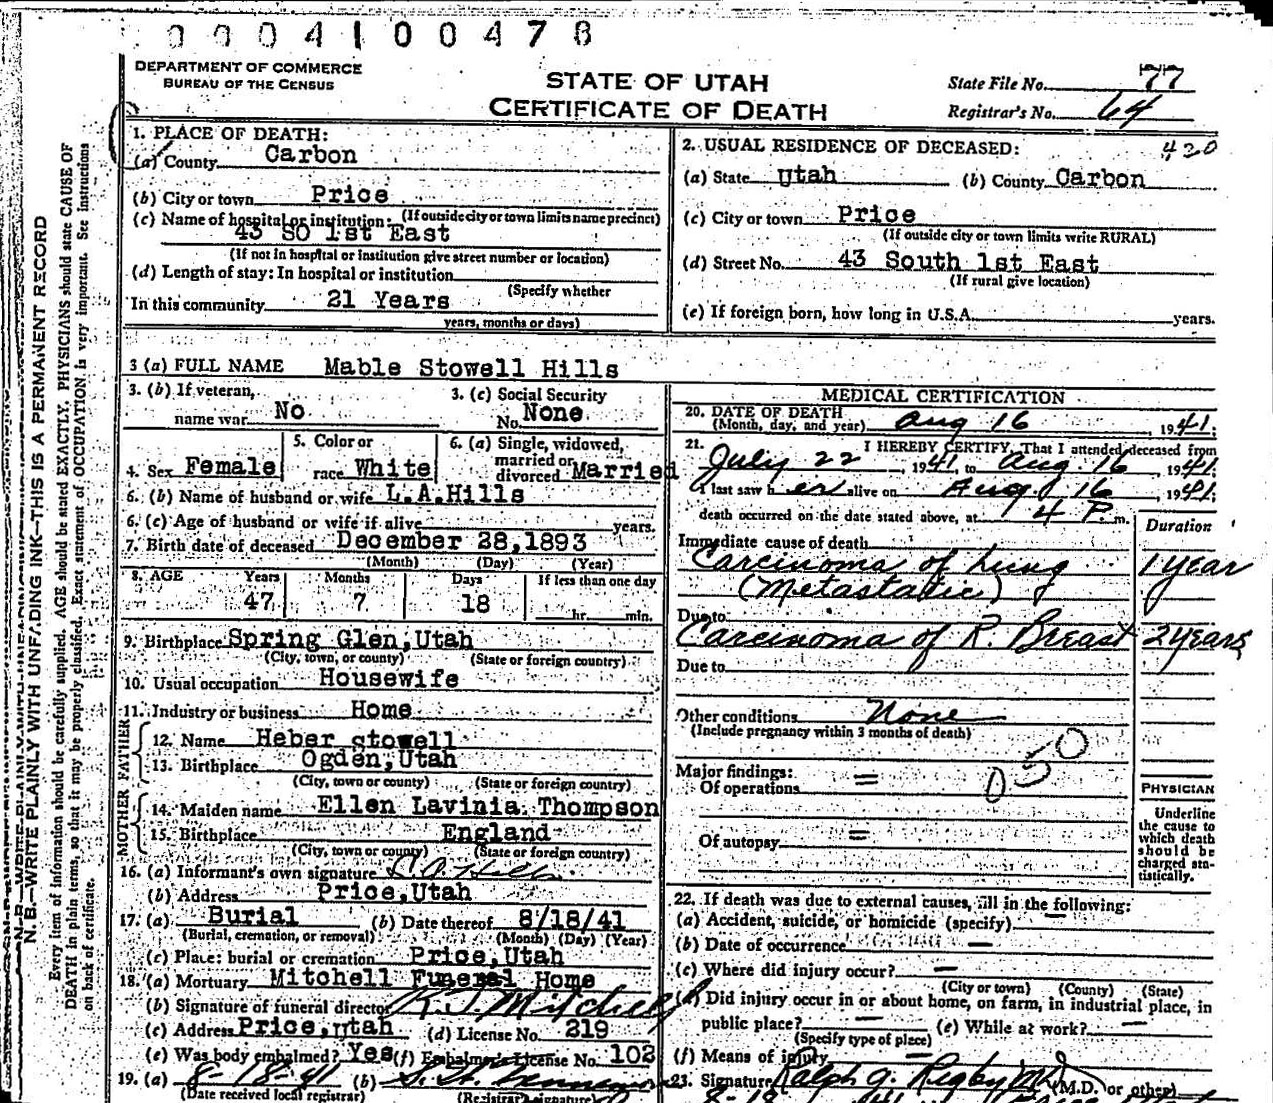 0004100478
DEPARTMENT OF COMMERCE
BUREAU OF THE CENSUS
STATE OF UTAH
CERTIFICATE OF DEATH
State File No. 77
Registrar's No. 64
N. B.—WRITE PLAINLY WITH UNFADING INK—THIS IS A PERMANENT RECORD
Every item of information should be carefully supplied. AGE should be stated EXACTLY. PHYSICIANS should state CAUSE OF
DEATH in plain terms, so that it may be properly classified. Exact statement of OCCUPATION is very important. See instructions
on back of certificate.
1. PLACE OF DEATH:
(a) County Carbon
(b) City or town Price
(If outside city or town limits name precinct)
(c) Name of hospital or institution:
43 SO 1st East
(If not in hospital or institution give street number or location)
(d) Length of stay: In hospital or institution
(Specify whether
In this community 21 Years
years, months or days)
2. USUAL RESIDENCE OF DECEASED: 420
(a) State Utah (b) County Carbon
(c) City or town Price
(If outside city or town limits write RURAL)
(d) Street No. 43 South 1st East
(If rural give location)
(e) If foreign born, how long in U.S.A. years.
3 (a) FULL NAME Mable Stowell Hills
3. (b) If veteran, name war No
3. (c) Social Security No. None
4. Sex Female
5. Color or race White
6. (a) Single, widowed, married or divorced Married
6. (b) Name of husband or wife L.A.Hills
6. (c) Age of husband or wife if alive years.
7. Birth date of deceased December 28,1893
(Month) (Day) (Year)
8. AGE Years Months Days If less than one day
47 7 18 hr. min.
9. Birthplace Spring Glen,Utah
(City, town, or county) (State or foreign country)
10. Usual occupation Housewife
11. Industry or business Home
FATHER
12. Name Heber stowell
13. Birthplace Ogden,Utah
(City, town or county) (State or foreign country)
MOTHER
14. Maiden name Ellen Lavinia Thompson
15. Birthplace England
(City, town or county) (State or foreign country)
16. (a) Informant's own signature L.A. Hills
(b) Address Price,Utah
17. (a) Burial (b) Date thereof 8/18/41
(Burial, cremation, or removal) (Month) (Day) (Year)
(c) Place: burial or cremation Price,Utah
18. (a) Mortuary Mitchell Funeral Home
(b) Signature of funeral director R.J. Mitchell
(c) Address Price,Utah (d) License No. 219
(e) Was body embalmed? Yes (f) Embalmer's License No. 102
19. (a) 8-18-41 (b)
(Date received local registrar) (Registrar's signature)
MEDICAL CERTIFICATION
20. DATE OF DEATH
(Month, day, and year) Aug 16 1941.
21. I HEREBY CERTIFY, That I attended deceased from
July 22, 1941, to Aug. 16, 1941.
I last saw her alive on Aug. 16, 1941;
death occurred on the date stated above, at 4 P. m.
Duration
Immediate cause of death
Carcinoma of Lung 1 year
(Metastatic)
Due to
Carcinoma of R. Breast 2 years
Due to
Other conditions None
(Include pregnancy within 3 months of death)
050
Major findings:
Of operations =
Of autopsy =
PHYSICIAN
Underline
the cause to
which death
should be
charged sta-
tistically.
22. If death was due to external causes, fill in the following:
(a) Accident, suicide, or homicide (specify) —
(b) Date of occurrence —
(c) Where did injury occur? —
(City or town) (County) (State)
(d) Did injury occur in or about home, on farm, in industrial place, in
public place? — (e) While at work? —
(Specify type of place)
(f) Means of injury —
23. Signature Ralph G. Rigby M.D. (M.D. or other)